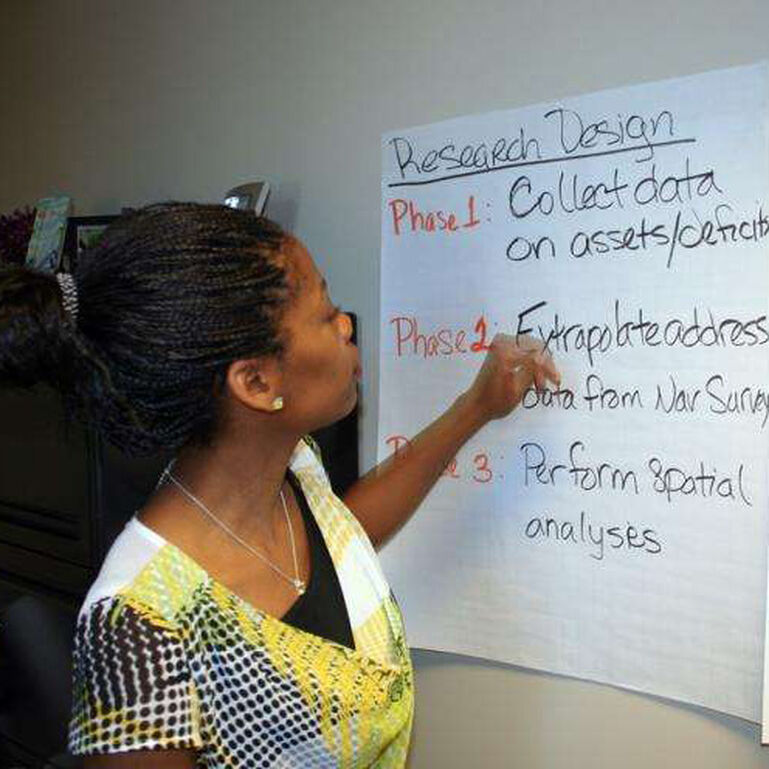 Research Design
Phase 1: Collect data
on assets/deficits
Phase 2: Extrapolate address
data from Nav Survey
Phase 3: Perform Spatial
analyses